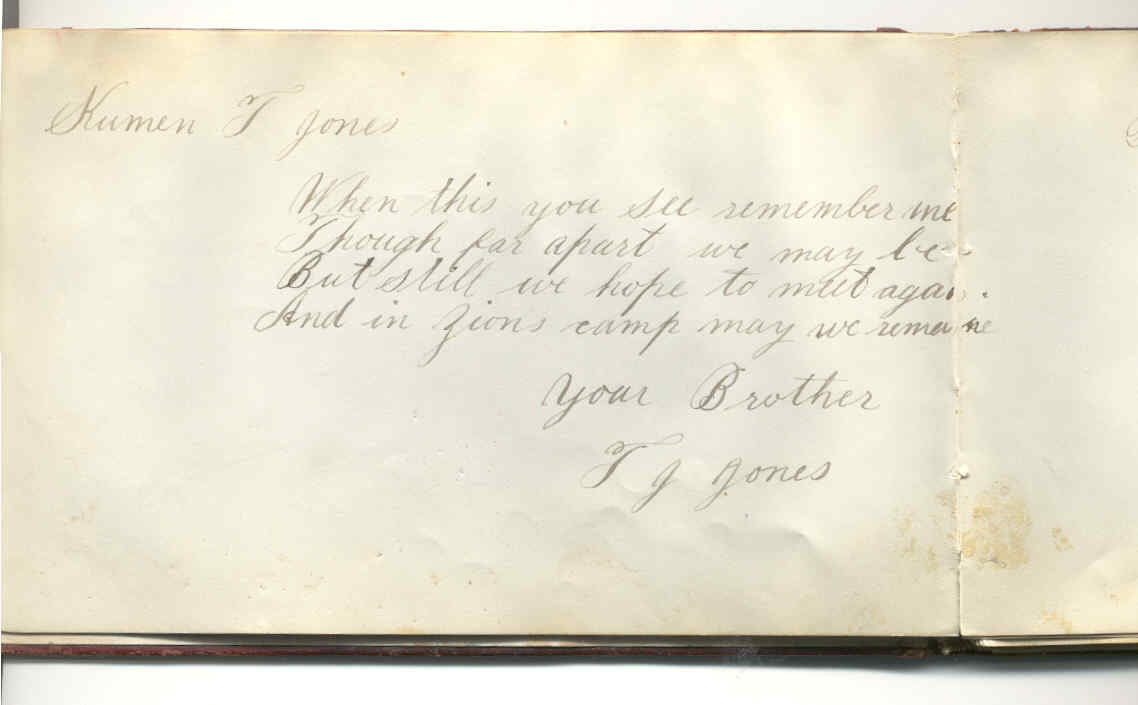 Kumen T Jones
When this you see remember me
Though far apart we may be
But still we hope to meet again.
And in Zions camp may we remane
Your Brother
T J Jones